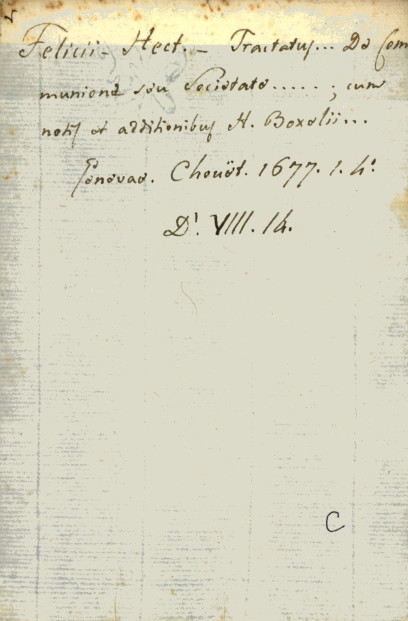 Felicii- Hect. - Tractatus... De Com
munione seu Societate......; cum
notis et additionibus H. Boxelii...
Genevae. Chouët. 1677. 1. 4°.
D'. VIII. 14.
C